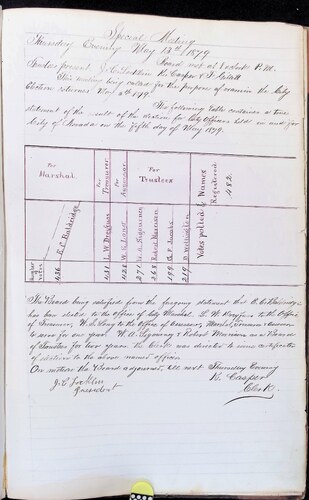 Special Meeting
Thursday Evening May 15th 1879
Board met at 7 o'clock P.M.
Trustees present J. C. Jocklin Kasper & F. Gillett
This meeting being called for the purpose of examining the City
Election returns May 5th 1879
The following Table contains a true
statement of the result of the election for City Officers held in and for
City of on the fifth day of May 1879.
For Marshal.
For Treasurer
For Assessor
For Trustees
Votes polled
Names Registered.
482.
E. C. Baldridge
L. W. Dreyfuss
W. S. Long
W. A. Segourney
Robert Morrison
P. Jacobs
D. Wellington
Number of votes
436
431
428
271
268
194
219
The Board being satisfied from the forgoing statement that E. C. Baldridge
has been elected to the office of City Marshal L. W. Dreyfuss to the Office
of Treasurer, W. S. Long to the Office of Assessor,
to serve for one year W. A. Segourney & Robert Morrison as a Board
of Trustees for two years the Clerk was directed to issue certificates
of election to the above named officers
On motion the Board adjourned till next Thursday Evening
J. C. Jocklin
President
K. Casper
Clerk